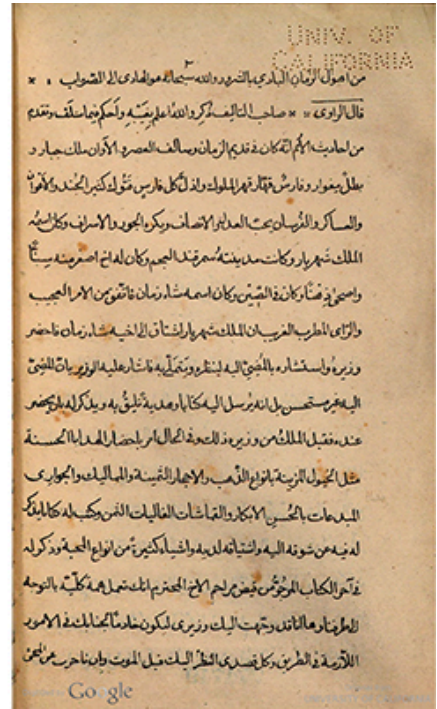 UNIV. OF
CALIFORNIA
٢
من اصول الزمان البادي بالشرور والله سبحانه هو الهادي الى الصواب
قال الراوى صاحب التاليف ذكر والله اعلم بغيبه واحكم فيما سلف وتقدم
من احاديث الأمم انه كان في قديم الزمان وسالف العصر والأوان ملك جبار و
بطل مغوار وفارس قهّار قهر الملوك واذل كل فارس كثير الجند والأعوان
والعساكر والفرسان يحبّ العدل والانصاف ويكره الجور والاسراف وكان اسمه
الملك شهريار وكانت مدينته سمرقند العجم وكان له اخ اصغر منه سنّاً
وكان في الصّين وكان اسمه شاه زمان فاتفق من الامر العجيب
والرّاى المطرب الغريب ان الملك شهريار اشتاق الى اخيه شاه زمان فاحضر
وزيره واستشاره بالمُضيّ اليه لينظره ويتملّى به فاشار عليه الوزير بانّ المضيّ
اليه غير مستحسن بل انه يُرسل اليه كتابا وهدية تليق به ويذكر له بان يحضر
عنده فقبل الملك من وزيره ذلك وفي الحال امر باحضار الهدايا الحسنة
مثل الخيول المزينة بانواع الذهب والاحجار الثمينة والمماليك والجوارى
المبدعات بالحُسن الابكار والقماشات الغاليات الثمن وكتب له كتابا يذكر
له فيه عن شوقه اليه واشتياقه لديه واشياء كثيرة من انواع المحبة وذكر له
في آخر الكتاب المرجو من فيض مراحم الاخ المحترم انك تعمل همة كليّة بالتوجه
لطرفنا وها انا قد وجهت اليك وزيرى ليكون خادماً لجنابك في الامور
اللازمة في الطريق وكل قصدى النظر اليك قبل الموت وان تأخرت عن المجئ
Google